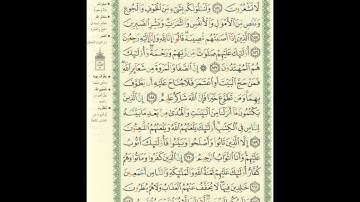 لَّا تَشْعُرُونَ ١٥٤ وَلَنَبْلُوَنَّكُم بِشَيْءٍ مِّنَ ٱلْخَوْفِ وَٱلْجُوعِ
وَنَقْصٍ مِّنَ ٱلْأَمْوَٰلِ وَٱلْأَنفُسِ وَٱلثَّمَرَٰتِ وَبَشِّرِ ٱلصَّٰبِرِينَ
١٥٥ ٱلَّذِينَ إِذَآ أَصَٰبَتْهُم مُّصِيبَةٌ قَالُوٓا۟ إِنَّا لِلَّهِ وَإِنَّآ إِلَيْهِ رَٰجِعُونَ
١٥٦ أُو۟لَٰٓئِكَ عَلَيْهِمْ صَلَوَٰتٌ مِّن رَّبِّهِمْ وَرَحْمَةٌ وَأُو۟لَٰٓئِكَ
هُمُ ٱلْمُهْتَدُونَ ١٥٧ ۞ إِنَّ ٱلصَّفَا وَٱلْمَرْوَةَ مِن شَعَآئِرِ ٱللَّهِ
فَمَنْ حَجَّ ٱلْبَيْتَ أَوِ ٱعْتَمَرَ فَلَا جُنَاحَ عَلَيْهِ أَن يَطَّوَّفَ
بِهِمَا وَمَن تَطَوَّعَ خَيْرًا فَإِنَّ ٱللَّهَ شَاكِرٌ عَلِيمٌ ١٥٨ إِنَّ ٱلَّذِينَ
يَكْتُمُونَ مَآ أَنزَلْنَا مِنَ ٱلْبَيِّنَٰتِ وَٱلْهُدَىٰ مِنۢ بَعْدِ مَا بَيَّنَّٰهُ
لِلنَّاسِ فِي ٱلْكِتَٰبِ أُو۟لَٰٓئِكَ يَلْعَنُهُمُ ٱللَّهُ وَيَلْعَنُهُمُ ٱللَّٰعِنُونَ
١٥٩ إِلَّا ٱلَّذِينَ تَابُوا۟ وَأَصْلَحُوا۟ وَبَيَّنُوا۟ فَأُو۟لَٰٓئِكَ أَتُوبُ
عَلَيْهِمْ وَأَنَا ٱلتَّوَّابُ ٱلرَّحِيمُ ١٦٠ إِنَّ ٱلَّذِينَ كَفَرُوا۟ وَمَاتُوا۟ وَهُمْ
كُفَّارٌ أُو۟لَٰٓئِكَ عَلَيْهِمْ لَعْنَةُ ٱللَّهِ وَٱلْمَلَٰٓئِكَةِ وَٱلنَّاسِ أَجْمَعِينَ
١٦١ خَٰلِدِينَ فِيهَا لَا يُخَفَّفُ عَنْهُمُ ٱلْعَذَابُ وَلَا هُمْ يُنظَرُونَ